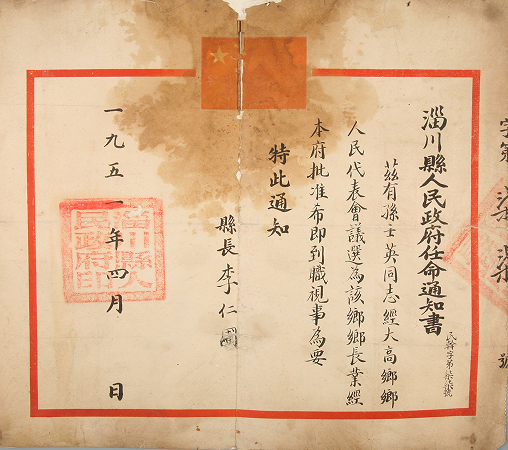 字第 柒柒 號
淄川縣人民政府任命通知書
民幹字第柒柒號
茲有孫士英同志經大高鄉鄉
人民代表會議選為該鄉鄉長業經
本府批准布即到職視事為要
特此通知
縣長李仁圃
一九五一年四月 日
淄川縣人民政府印